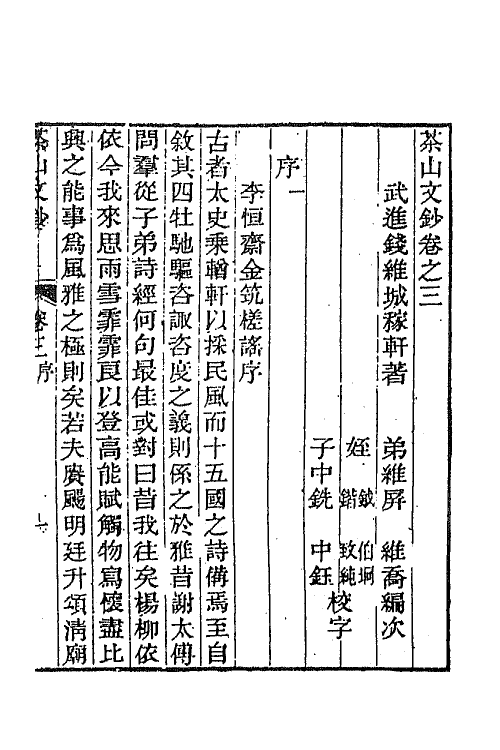 茶山文鈔卷之三
武進錢維城稼軒著　弟維屏　維喬編次
姪鉞　伯坰
鍇　致純
子中銑　中鈺校字
序一
李恒齋金筑槎謠序
古者太史乘輶軒以採民風而十五國之詩備焉至自
敘其四牡馳驅咨諏咨度之義則係之於雅昔謝太傅
問羣從子弟詩經何句最佳或對曰昔我往矣楊柳依
依今我來思雨雪霏霏良以登高能賦觸物寫懷盡比
興之能事爲風雅之極則矣若夫賡颺明廷升頌淸廟
茶山文鈔　卷三序